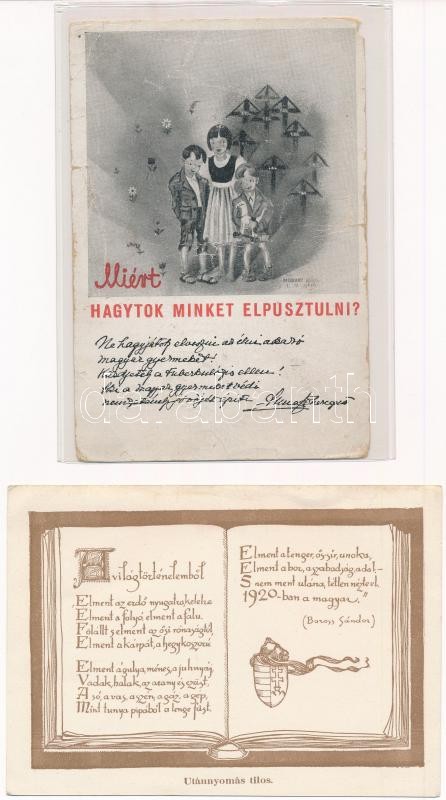 Miért
HAGYTOK MINKET ELPUSZTULNI?
Ne hagyjátok elveszni az élni akaró
magyar gyermeket!
Küzdjetek a Tuberkulózis ellen!
Aki a magyar gyermeket védi
jövőjét építi
darabanth
A világtörténelemből
Elment az erdő nyugatra, keletre
Elment a folyó, elment a falu.
Felállt s elment az ősi rónaságtól,
Elment a Kárpát, a hegykoszorú
Elment a gulya, ménes, a juhnyáj,
Vadak, halak, az arany és ezüst,
A só, a vas, a szén, a gáz, a gép,
Mint tunya pipából a lenge füst.
Elment a tenger, ős-sír, unoka,
Elment a bor, a szabadság, a dal –
S nem ment utána, tétlen nézte el
1920-ban a magyar."
(Boross Sándor)
Utánnyomás tilos.